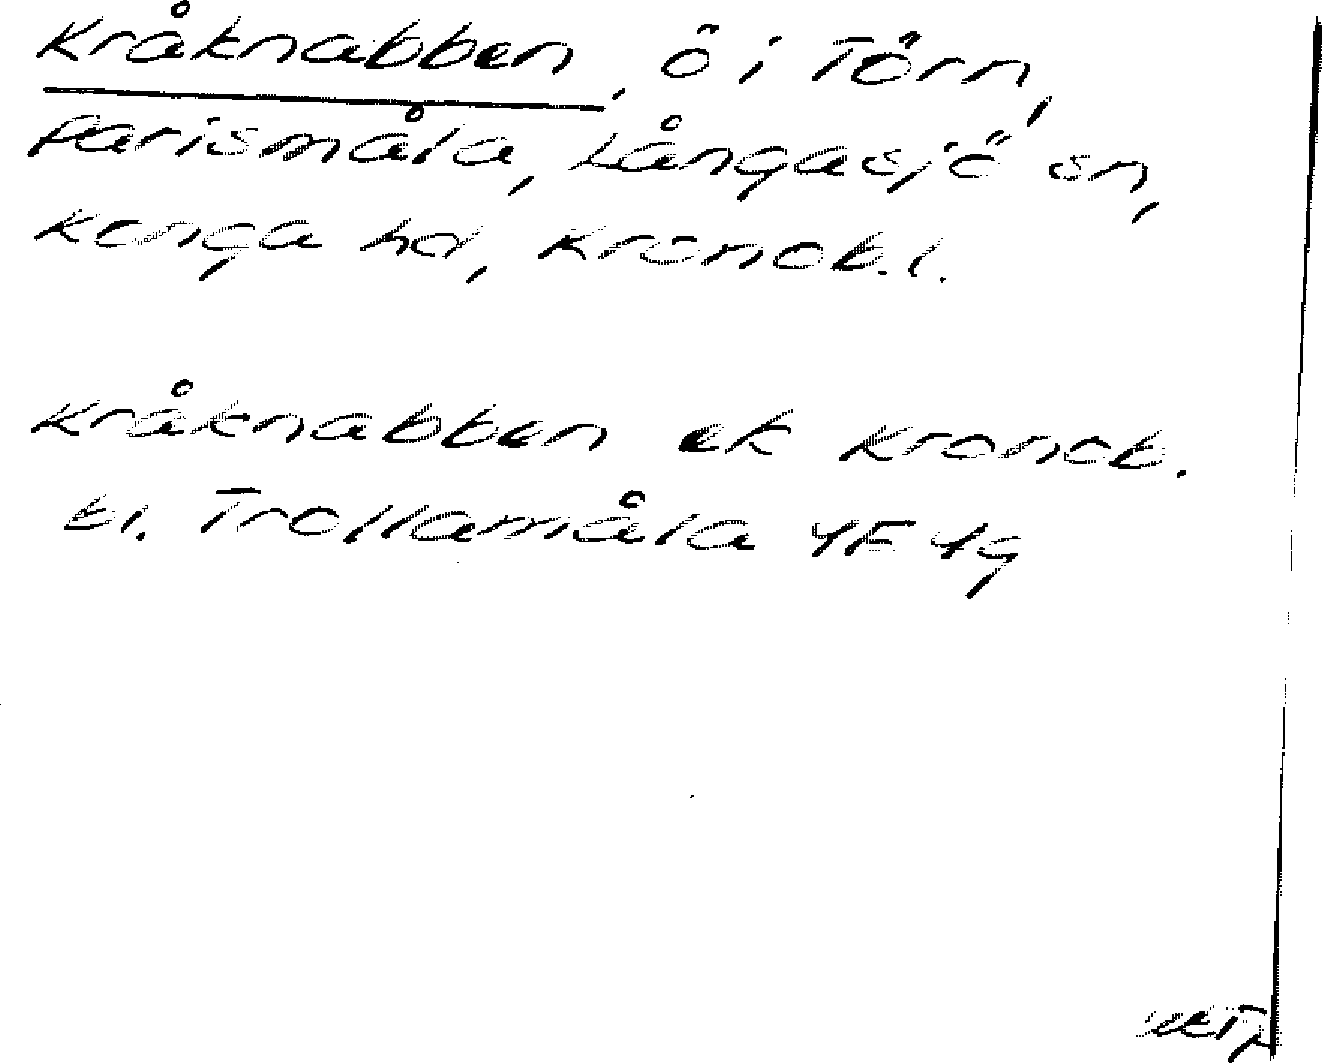 Kråknabben, ö i Törn,
Parismåla, Långasjö sn,
Konga hd, Kronob.l.
Kråknabben ek Kronob.
bl. Trollamåla 4F4g